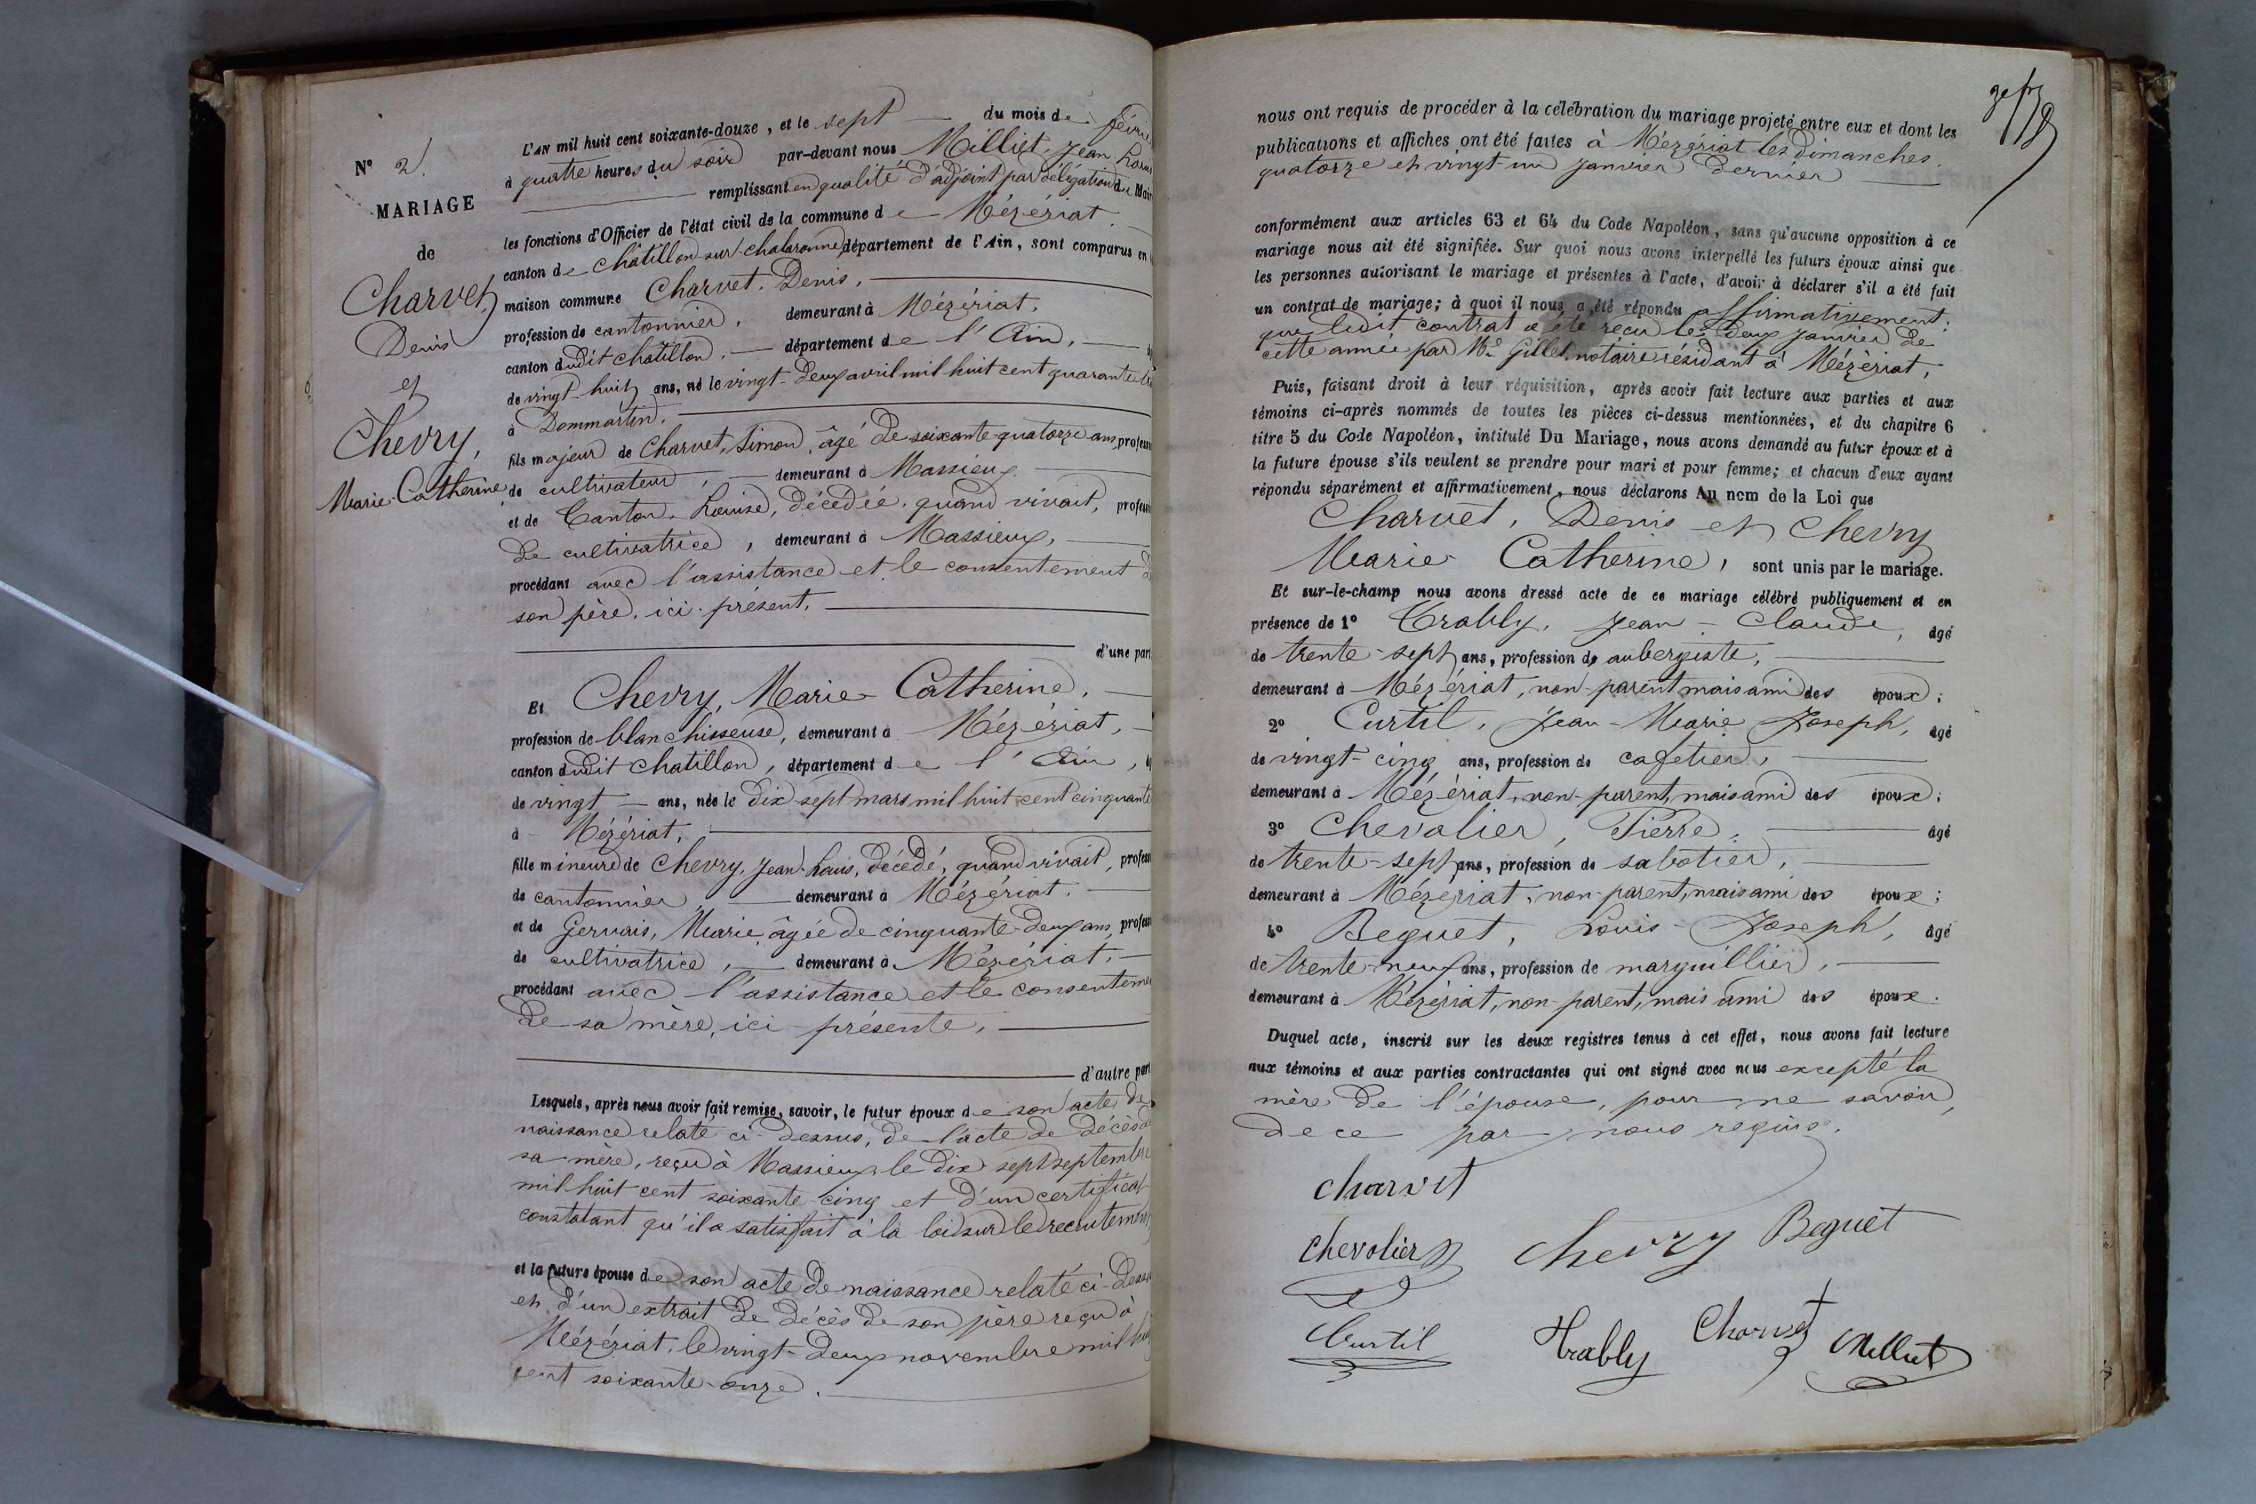 N° 2.
MARIAGE
de
Charvet,
Denis
et
Chevry,
Marie-Catherine
L'AN mil huit cent soixante-douze, et le sept du mois de
à quatre heures du soir par-devant nous Milliet, Jean Louis
remplissant en qualité d'adjoint par délégation du Maire
les fonctions d'Officier de l'état civil de la commune de Mézériat
canton de Châtillon-sur-chalaronne département de l'Ain, sont comparus en
maison commune Charvet, Denis,
profession de cantonnier, demeurant à Mézériat,
canton dudit chatillon, département de l'Ain,
de vingt-huit ans, né le vingt-deux avril mil huit cent quarante
à Dommartin,
fils majeur de Charvet, Simon, âgé de soixante-quatorze ans, profess
de cultivateur, demeurant à Massieux
et de Canton, Louise, décédée, quand vivait, profess
de cultivatrice, demeurant à Massieux,
procédant avec l'assistance et le consentement
son père, ici présent,
d'une part
Et Chevry, Marie-Catherine,
profession de blanchisseuse, demeurant à Mézériat,
canton dudit chatillon, département de l'Ain,
de vingt ans, née le dix-sept mars mil huit cent cinquante
à Mézériat,
fille mineure de Chevry, Jean-Louis, décédé, quand vivait, profess
de cantonnier, demeurant à Mézériat,
et de Gervais, Marie, âgée de cinquante-deux ans, profess
de cultivatrice, demeurant à Mézériat,
procédant avec l'assistance et le consenteme
de sa mère, ici présente,
d'autre part
Lesquels, après nous avoir fait remise, savoir, le futur époux de son acte de
naissance relaté ci-dessus, de l'acte de décès de
sa mère, reçu à Massieux le dix-sept septembre
mil huit cent soixante-cinq et d'un certificat
constatant qu'il a satisfait à la loi sur le recrutement,
et la future épouse de son acte de naissance relaté ci-dess
et d'un extrait de décès de son père reçu à
Mézériat, le vingt-deux novembre mil huit
cent soixante-onze.
nous ont requis de procéder à la célébration du mariage projeté entre eux et dont les
publications et affiches ont été faites à Mézériat les dimanches
quatorze et vingt-un janvier dernier
conformément aux articles 63 et 64 du Code Napoléon, sans qu'aucune opposition à ce
mariage nous ait été signifiée. Sur quoi nous avons interpellé les futurs époux ainsi que
les personnes autorisant le mariage et présentes à l'acte, d'avoir à déclarer s'il a été fait
un contrat de mariage; à quoi il nous a été répondu affirmativement;
que ledit contrat a été reçu le deux janvier de
cette année par Me Gillet, notaire résidant à Mézériat,
Puis, faisant droit à leur réquisition, après avoir fait lecture aux parties et aux
témoins ci-après nommés de toutes les pièces ci-dessus mentionnées, et du chapitre 6
titre 5 du Code Napoléon, intitulé Du Mariage, nous avons demandé au futur époux et à
la future épouse s'ils veulent se prendre pour mari et pour femme; et chacun d'eux ayant
répondu séparément et affirmativement, nous déclarons Au nom de la Loi que
Charvet, Denis et Chevry
Marie-Catherine, sont unis par le mariage.
Et sur-le-champ nous avons dressé acte de ce mariage célébré publiquement et en
présence de 1° Trably, Jean-Claude, âgé
de trente-sept ans, profession de aubergiste,
demeurant à Mézériat, non-parent mais ami des époux;
2° Curtil, Jean-Marie Joseph, âgé
de vingt-cinq ans, profession de cafetier,
demeurant à Mézériat, non-parent, mais ami des époux;
3° Chevalier, Pierre, âgé
de trente-sept ans, profession de sabotier,
demeurant à Mézériat, non-parent, mais ami des époux;
4° Beguet, Louis-Joseph, âgé
de trente-neuf ans, profession de marguillier,
demeurant à Mézériat, non-parent, mais ami des époux.
Duquel acte, inscrit sur les deux registres tenus à cet effet, nous avons fait lecture
aux témoins et aux parties contractantes qui ont signé avec nous excepté la
mère de l'épouse, pour ne savoir,
de ce par nous requis.
Charvet
Chevalier P Chevry Beguet
Curtil Trably Charvet Milliet